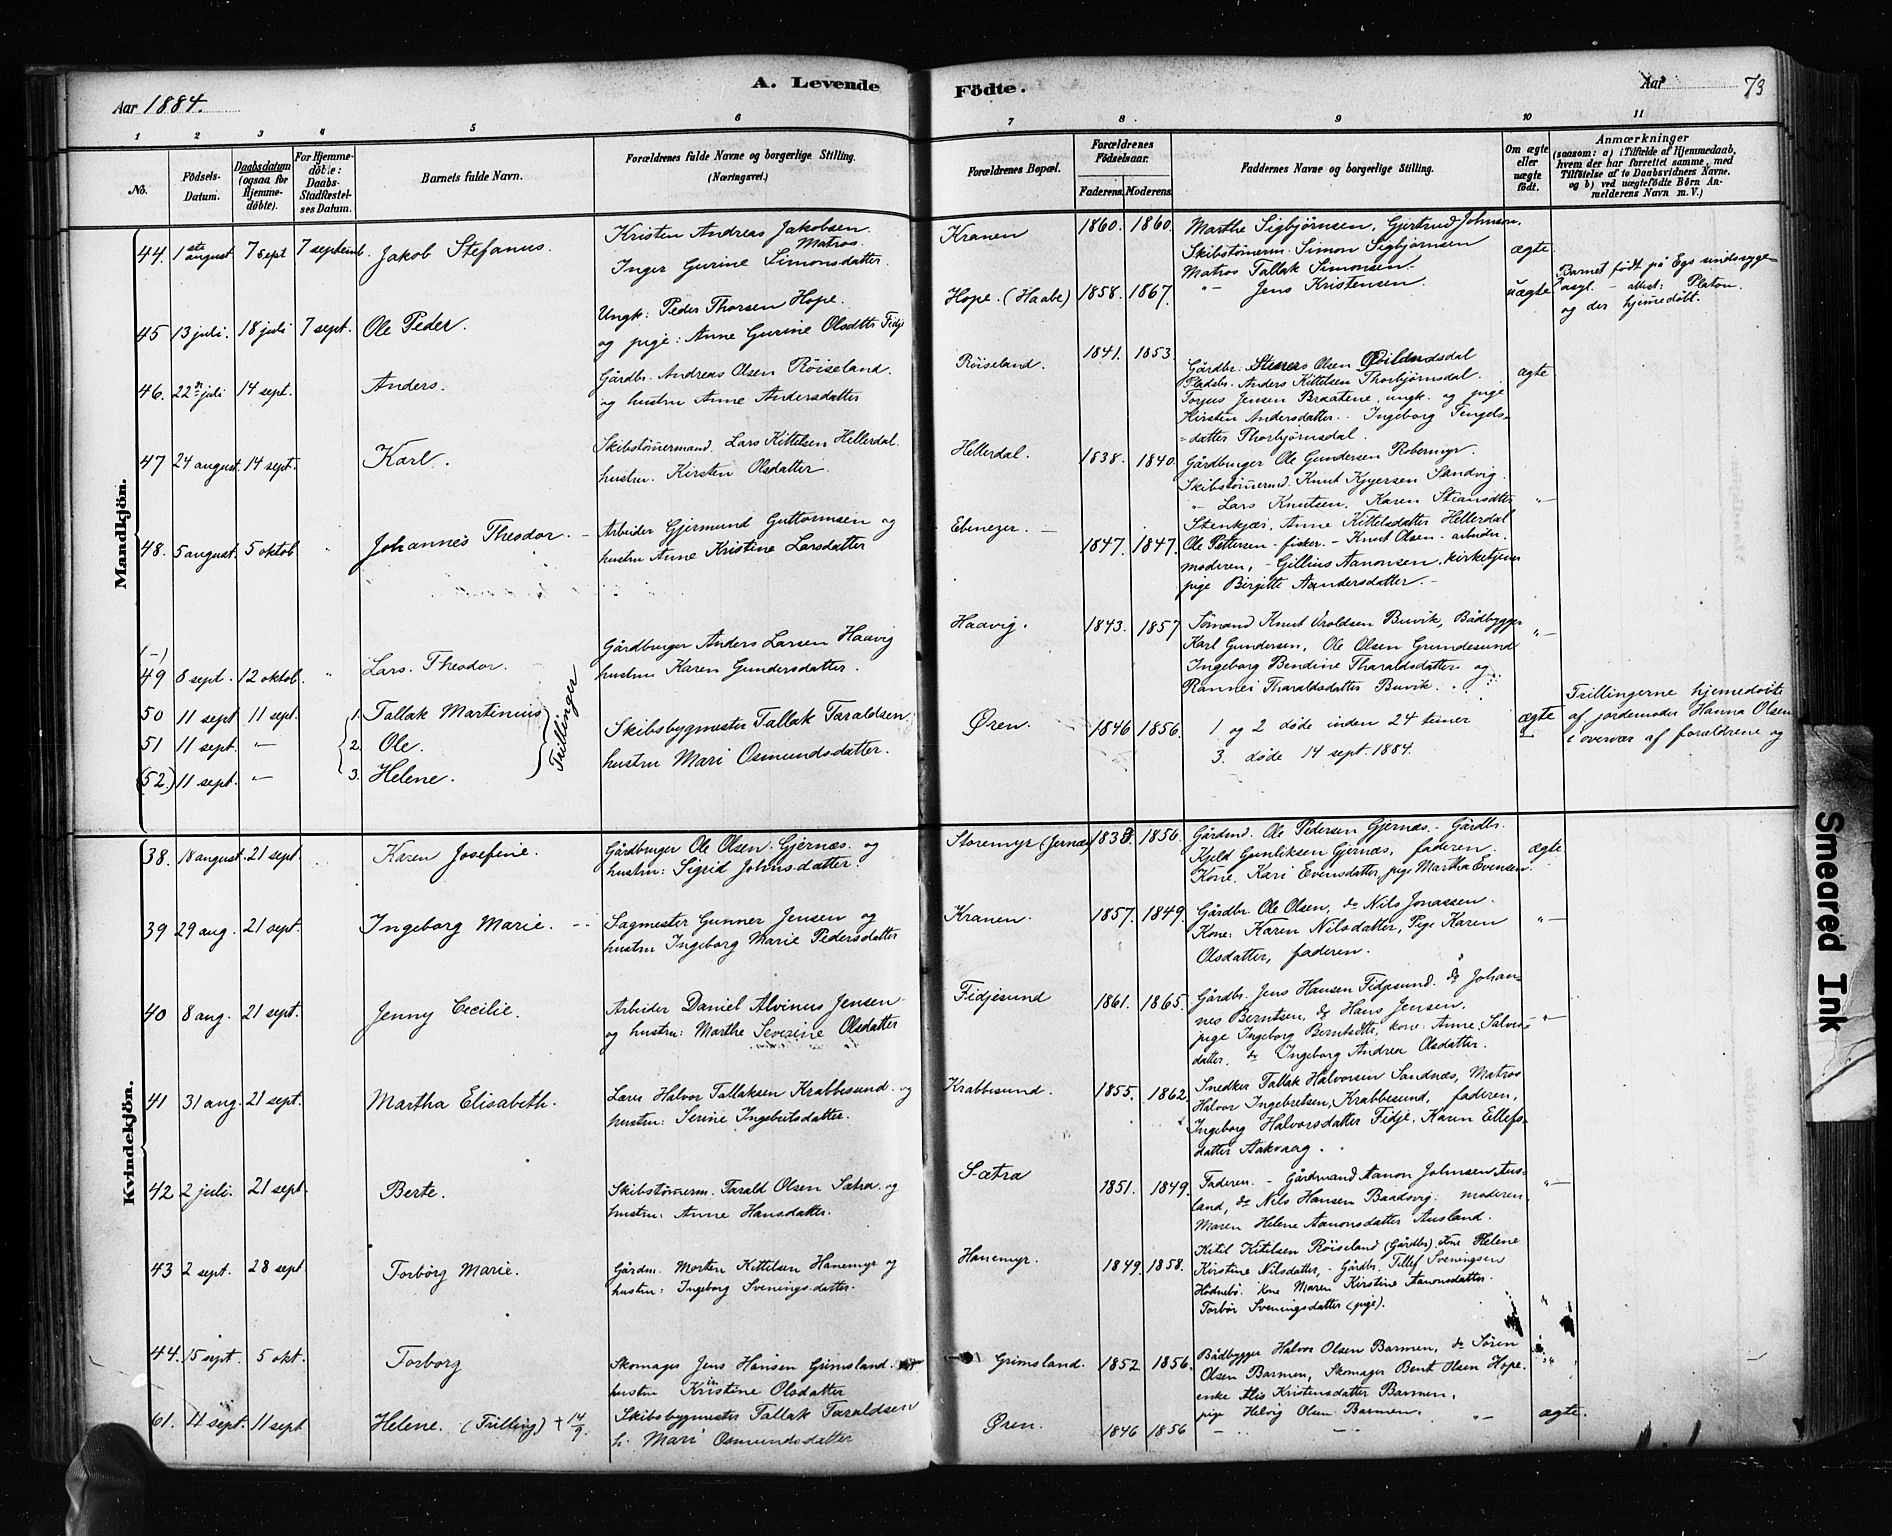 A. Levende
Födte.
Aar 1884.
Aar
73
1 2 3 4 5 6 7 8. 9 10 11
No.
Födsels-
Datum.
Daabsdatum
(ogsaa for
Hjemme-
döbte).
For Hjemme-
döbte:
Daabs-
Stadfæstel-
ses Datum.
Barnets fulde Navn.
Forældrenes fulde Navne og borgerlige Stilling.
(Næringsvei.)
Forældrenes Bopæl.
Forældrenes
Födselsaar.
Faderens. Moderens.
Faddernes Navne og borgerlige Stilling.
Om ægte
eller
uægte
födt.
Anmærkninger
(saasom: a) i Tilfælde af Hjemmedaab,
hvem der har forrettet samme, med
Tilföielse af to Daabsvidners Navne,
og b) ved uægtefödte Börn An-
melderens Navn m. V.)
Mandkjön.
44. 1ste august 7 sept 7 septemb. Jakob Stefanus.
Kristen Andreas Jakobsen.
Matros
Inger Gurine Simonsdatter.
Kranen 1860. 1860.
Marthe Sigbjörnsen, Gjertrud Johnson,
Skibstömerm. Simon Sigbjörnsen
Matros Tallak Simonsen.
" Jens Kristensen.
ægte
45 13 juli. 18 juli 7 sept. Ole Peder.
Ungk: Peder Thorsen Hope.
og pige: Anne Gurine Olsdtts Fidje
Hope. (Haabe) 1858. 1867.
uægte
Barnet født på Egs sindssyge-
asyl. – attst: Platou.
og der hjemedöbt.
46. 22n juli 14 sept. Anders.
Gårdbr. Andreas Olsen Röiseland.
og hustru Anne Andersdatter
Röiseland. 1841. 1853.
Gårdbr. Olsen
Pladsbr. Anders Kittelsen Thorbjörnsdal.
Torjus Jensen Braatene, ungk. og pige
Kirsten Andersdatter. Ingeborg Tengels-
datter Thorbjörnsdal.
ægte
47 24 august. 14 sept. Karl.
Skibstömermand. Lars Kittelsen Hellerdal.
hustru. Kirsten Olsdatter.
Hellerdal. 1838. 1840.
Gårdbruger Ole Gundersen Robermyr.
Skibstömermd. Knut Sandvig
" Lars Knutsen, Karen
Stenkjær, Anne Kittelsdatter Hellerdal
" –
48. 5 august. 5 oktob. " Johannes Theodor. –
Arbeider Gjermund Guttormsen og
hustru Anne Kristine Larsdatter
Ebenezer. – 1847. 1847.
Ole Pettersen – fisker. – Knut Olsen – arbeider.
moderen, – Gillius Aanonsen, kirketjener
pige Birgitte Aandersdatter. –
(–)
49 8 sept. 12 oktob. " Lars. Theodor.
Gårdbruger Anders Larsen Haavig
hustru Karen Gundersdatter.
Haavig. 1843. 1857
Sömand Knut Buvik, Bådbygger
Karl Gundersen, Ole Olsen Grundesund
Ingeborg Bendine Tharaldsdatter og
Tharaldsdatter Buvik.
" –
50 11 sept 11 sept. 1. Tallak Martinius
51 11 sept. " 2. Ole.
(52.) 11 sept. " 3. Helene.
Trillinger
Skibsbygmester Tallak Taraldsen
hustru Mari Osmundsdatter.
Øren. 1846 1856.
1 og 2 døde inden 24 timer
3. døde 14 sept. 1884.
ægte
Trillingerne hjemedöbte
af jordemoder Hanna Olsen
i overvær af forældrene og
Kvindekjön.
38. 18 august. 21 sept. Karen Josefine.
Gårdbruger Ole Olsen Gjernæs. og
hustru: Sigrid Johnsdatter.
Storemyr (Jernæs) 1839. 1856.
Gårdmd. Ole Pedersen Gjernæs. – Gårdbr.
Kjeld Gunliksen Gjernæs, faderen.
Kone. Kari Evensdatter, pige Martha Evensen.
ægte
39 29 aug. 21 sept. Ingeborg Marie. –
Sagmester Gunner Jensen og
hustru Ingeborg Marie Pedersdatter
Kranen. 1857. 1849.
Gårdbr. Ole Olsen, do Nils Jonassen.
Kone: Karen Nilsdatter, Pige Karen
Olsdatter, faderen.
" –
40 8 aug. 21 sept. Jenny Cecilie.
Arbeider Daniel Alvinus Jensen
og hustru: Marthe Severine Olsdatter
Fidjesund 1861. 1865.
Gårdbr. Jens Hansen Fidjesund. do Johan-
nes Berntsen, do Hans Jensen,
pige Ingeborg Berntsdtr, kone: Anne Salves-
datter. do Ingeborg Andrea Olsdatter.
" –
41 31 aug. 21 sept. Martha Elisabeth.
Lærer Halvor Tallaksen Krabbesund. og
hustru: Serine Ingebretsdatter.
Krabbesund. 1855. 1862.
Snedker Tallak Halvorsen Sandnæs, Matros
Halvor Ingebretsen, Krabbesund, faderen,
Ingeborg Halvorsdatter Fidje, Karen Ellefs-
datter Aakvaag.
42 2 juli. 21 sept. Berte.
Skibstömerm. Tarald Olsen Sætra. og
hustru: Anne Hansdatter.
Sætra 1851. 1849.
Faderen. – Gårdmand Aanon Johnsen Aus-
land, do Nils Hansen Baadsvig. moderen.
Maren Helene Aanonsdatter Ausland.
" –
43 2 sept. 28 sept Torbörg Marie.
Gårdm. Morten Kittilsen Hanemyr og
hustru: Ingeborg Svenings datter.
Hanemyr. 1849. 1858.
Kitil Kitilsen Röiseland (Gårdbr). Kone Helene
Kirstine Nilsdatter, – Gårdbr. Tillef Sveningsen
Hödnebö. Kone Maren Kirstine Aanonsdatter.
Torbör Sveningsdatter (pige).
"
44. 15 sept. 5 okt. Torborg
Skomager Jens Hansen Grimsland.
hustru Kristine Olsdatter
Grimsland. 1852. 1856.
Bådbygger Halvor Olsen Barmen, do Sören
Olsen Barmen, Skomager Bent Olsen Hope.
enke Alis Kristensdatter Barmen,
pige Helvig Olsen Barmen.
"
61. 11 sept. 11 sept Helene. (Trilling) † 14/9.
Skibsbygmester Tallak Taraldsen
h. Mari Osmundsdatter
Øren. 1846 1856
" –
ægte.
Smeared Ink